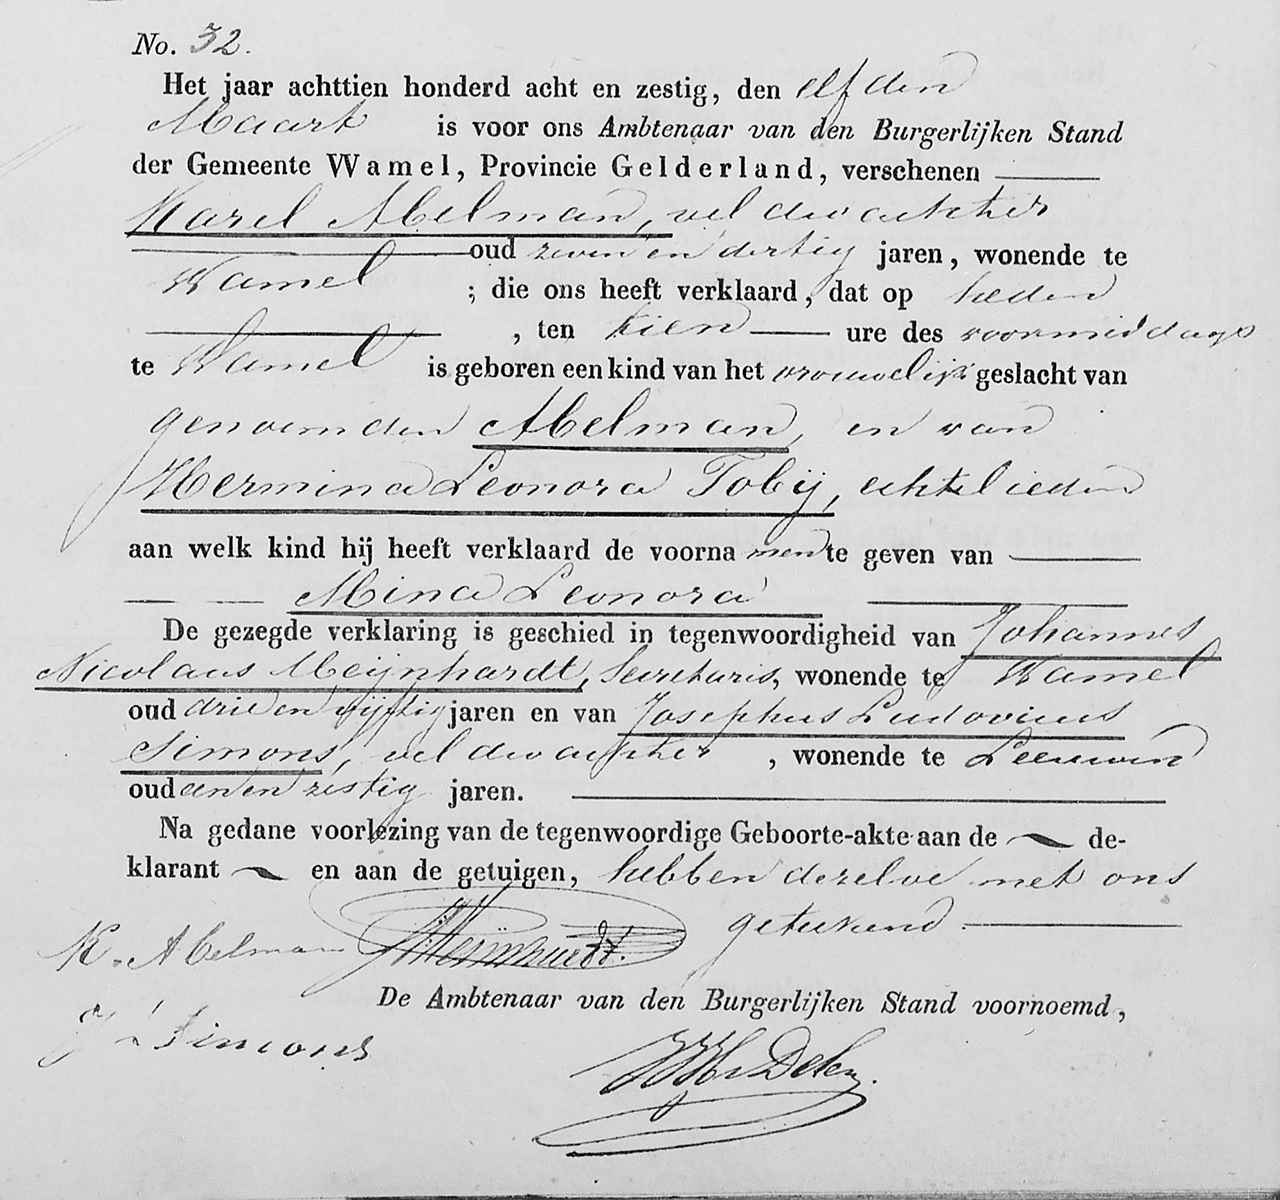 No. 32.
Het jaar achttien honderd acht en zestig, den elfden
Maart is voor ons Ambtenaar van den Burgerlijken Stand
der Gemeente Wamel, Provincie Gelderland, verschenen
Karel Abelman, veldwachter
oud zeven en dertig jaren, wonende te
Wamel ; die ons heeft verklaard, dat op heden
, ten tien ure des voormiddags
te Wamel is geboren een kind van het vrouwelijk geslacht van
genoemden Abelman, en van
Hermina Leonora Tobij, echtelieden
aan welk kind hij heeft verklaard de voornamen te geven van
Mina Leonora
De gezegde verklaring is geschied in tegenwoordigheid van Johannes
Nicolaus Meijnhardt, Secretaris, wonende te Wamel
oud drie en vijftig jaren en van Josephus Ludovicus
Simons, veldwachter, wonende te Leeuwen
oud en zestig jaren.
Na gedane voorlezing van de tegenwoordige Geboorte-akte aan de de-
klarant en aan de getuigen, hebben dezelve met ons
geteekend.
K. Abelman Meijnhardt.
De Ambtenaar van den Burgerlijken Stand voornoemd,
Simons